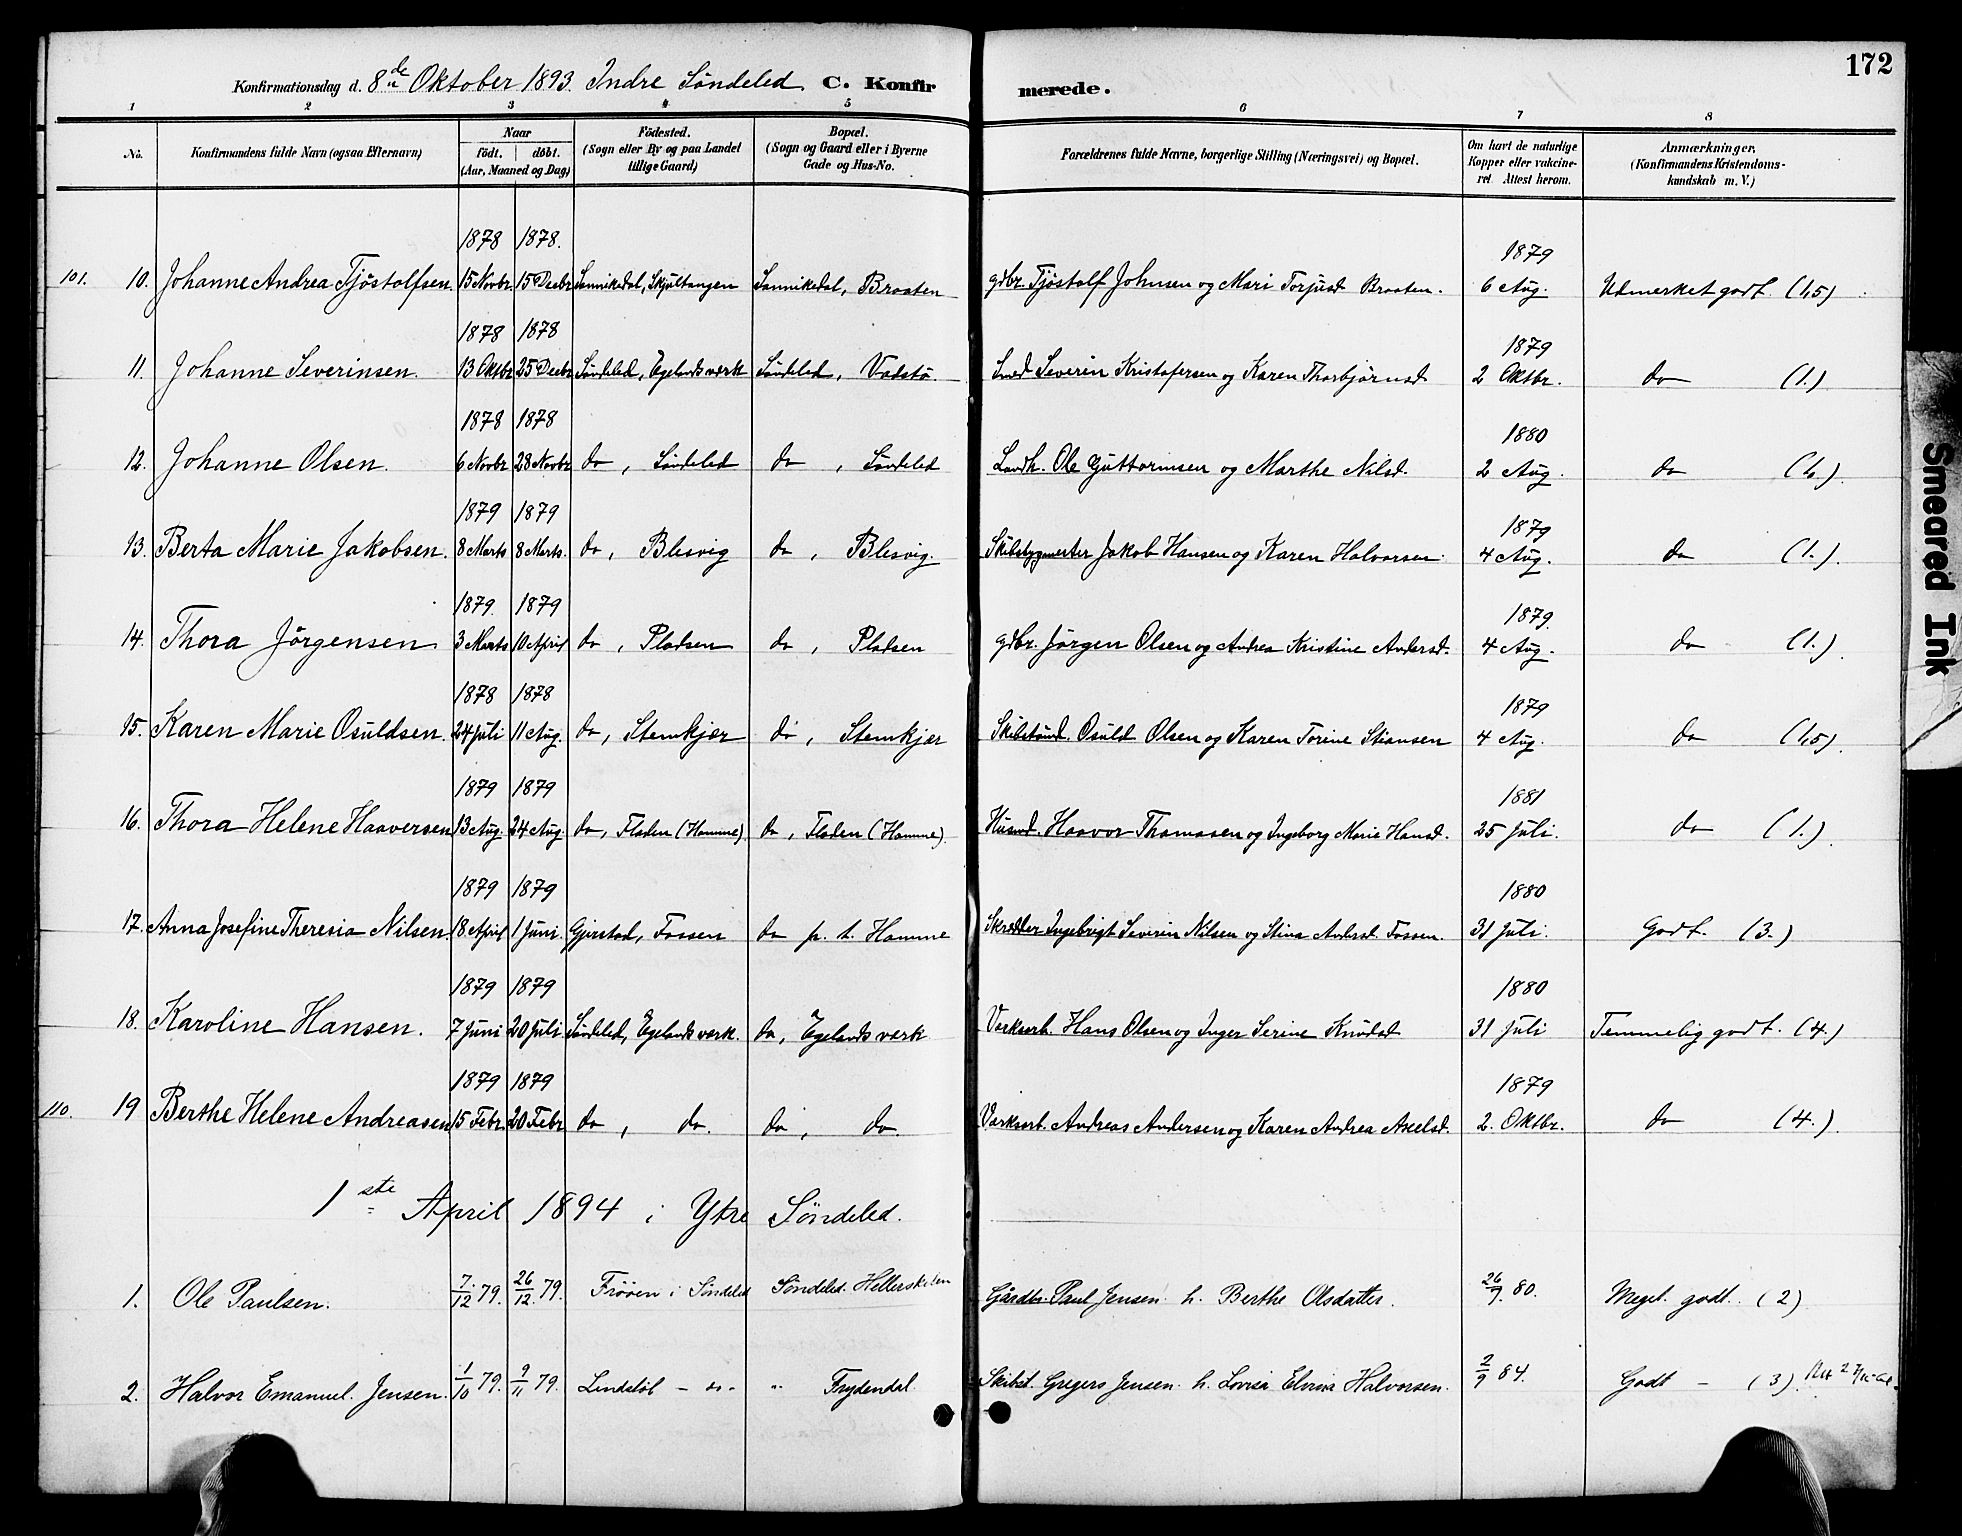 172
Konfirmationsdag d. 8de Oktober 1893. Indre Söndeled C. Konfirmerede.
1 2 3 4 5 6 7 8
No. Konfirmandens fulde Navn (ogsaa Efternavn) Naar födt. döbt. (Aar, Maaned og Dag) Födested. (Sogn eller By og paa Landet tillige Gaard) Bopæl. (Sogn og Gaard eller i Byerne Gade og Hus-No. Forældrenes fulde Navne, borgerlige Stilling (Næringsvei) og Bopæl. Om havt de naturlige Kopper eller vakcineret. Attest herom. Anmærkninger, (Konfirmandens Kristendomskundskab m. V.)
1878 1878. 1879
101. 10. Johanne Andrea Tjöstolfsen. 15 Novbr. 15 Decbr Sannikedal, Skjultangen Sannikedal, Braaten gdbr. Tjöstolf Johnsen og Mari Torjusd. Braaten. 6 Aug. Udmerket godt. (1,5)
1878 1878 1879
11. Johanne Severinsen. 13 Oktbr 25 Decbr Söndeled, Egelands værk Söndeled, Vadstö. Smed Severin Kristofersen og Karen Thorbjörnsd. 2 Oktbr. do (1.)
1878 1878 1880
12. Johanne Olsen. 6 Novbr 28 Novbr do, Söndeled do, Söndeled Landh. Ole Guttormsen og Marthe Nilsd. 2 Aug. do
1879 1879 1879
13. Berta Marie Jakobsen. 8 Marts 8 Marts. do, Blesvig do, Blesvig. Skibsbygmester Jakob Hansen og Karen Halvorsen. 4 Aug. do (1.)
1879. 1879 1879.
14. Thora Jörgensen 3 Marts 10 April do, Pladsen do, Pladsen gdbr. Jörgen Olsen og Andrea Kristine Andersd. 4 Aug. do (1.)
1878 1878 1879
15. Karen Marie Osuldsen. 24 Juli 11 Aug. do, Stemkjær do, Stemkjær Skibstömd. Osuld Olsen og Karen Torine Stiansen 4 Aug. do (1,5)
1879 1879 1881
16. Thora Helene Haaversen 13 Aug. 24 Aug. do, Fladen (Hamme) do, Fladen (Hamme). Husmd. Haavor Thomasen og Ingeborg Marie Hansd. 25 Juli. do (1.)
1879 1879 1880
17. Anna Josefine Theresia Nilsen. 18 April 1 Juni. Gjerstad, Fossen do p. t. Hamme Skredder Ingebrigt Severin Nilsen og Stina Andersd. Fossen. 31 Juli. Godt. (3.)
1879 1879 1880
18. Karoline Hansen. 7 Juni 20 Juli. Söndeled, Egelands værk. do, Egelands værk Værksarb. Hans Olsen og Inger Serine Knudsd. 31 Juli Temmelig godt. (4.)
1879 1879 1879
110. 19 Berthe Helene Andreasen 15 Febr. 20 Febr do, do. do, do. Værksarb. Andreas Andersen og Karen Andrea Axelsd. 2. Oktbr. do (4.)
1ste April 1894 i Ytre Söndeled.
1. Ole Paulsen. 7/12 79. 26/12. 79. Fröen i Söndeled Söndeled. Hellerskilen Gårdbr. Paul Jensen h. Berthe Olsdatter. 26/9. 80. Meget godt. (2)
2. Halvor Emanuel Jensen. 1/10 79. 9/11 79. Lindstöl - do - " Frydendal. Skibst. Gregers Jensen h. Lovisa Elvina Halvorsen. 2/9 84. Godt - (3)
Smeared Ink